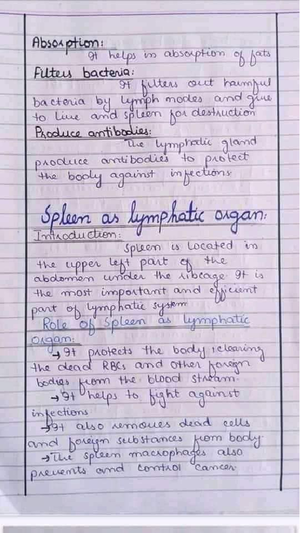 Absorption:
It helps in absorption of fats
Filters bacteria:
It filters out harmful
bacteria by lymph nodes and give
to live and spleen for destruction
Produce antibodies:
The lymphatic gland
produce antibodies to protect
the body against infections
Spleen as lymphatic organ:
Introduction:
Spleen is located in
the upper left part of the
abdomen under the ribcage It is
the most important and efficient
part of lymphatic system
Role of Spleen as lymphatic
organ:
→ It protects the body clearing
the dead RBCs and other foreign
bodies from the blood stream.
→ It helps to fight against
infections
→ It also removes dead cells
and foreign substances from body
→ The spleen macrophages also
prevents and control cancer